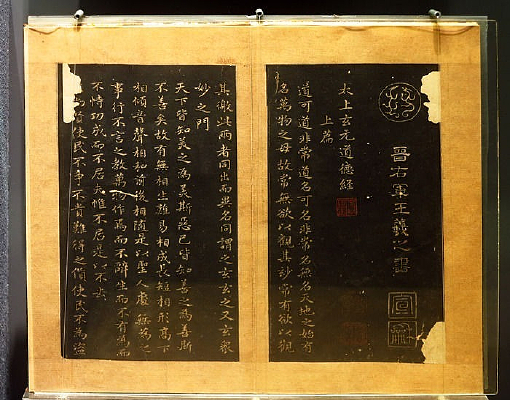 晉右軍王羲之書
太上玄元道德經
上篇
道可道非常道名可名非常名無名天地之始有
名萬物之母故常無欲以觀其妙常有欲以觀
其徼此兩者同出而異名同謂之玄玄之又玄衆
妙之門
天下皆知美之為美斯惡已皆知善之為善斯
不善矣故有無相生難易相成長短相形高下
相傾音聲相和前後相隨是以聖人處無為之
事行不言之教萬物作焉而不辭生而不有為而
不恃功成而不居夫惟不居是以不去
不尚賢使民不爭不貴難得之貨使民不為盜